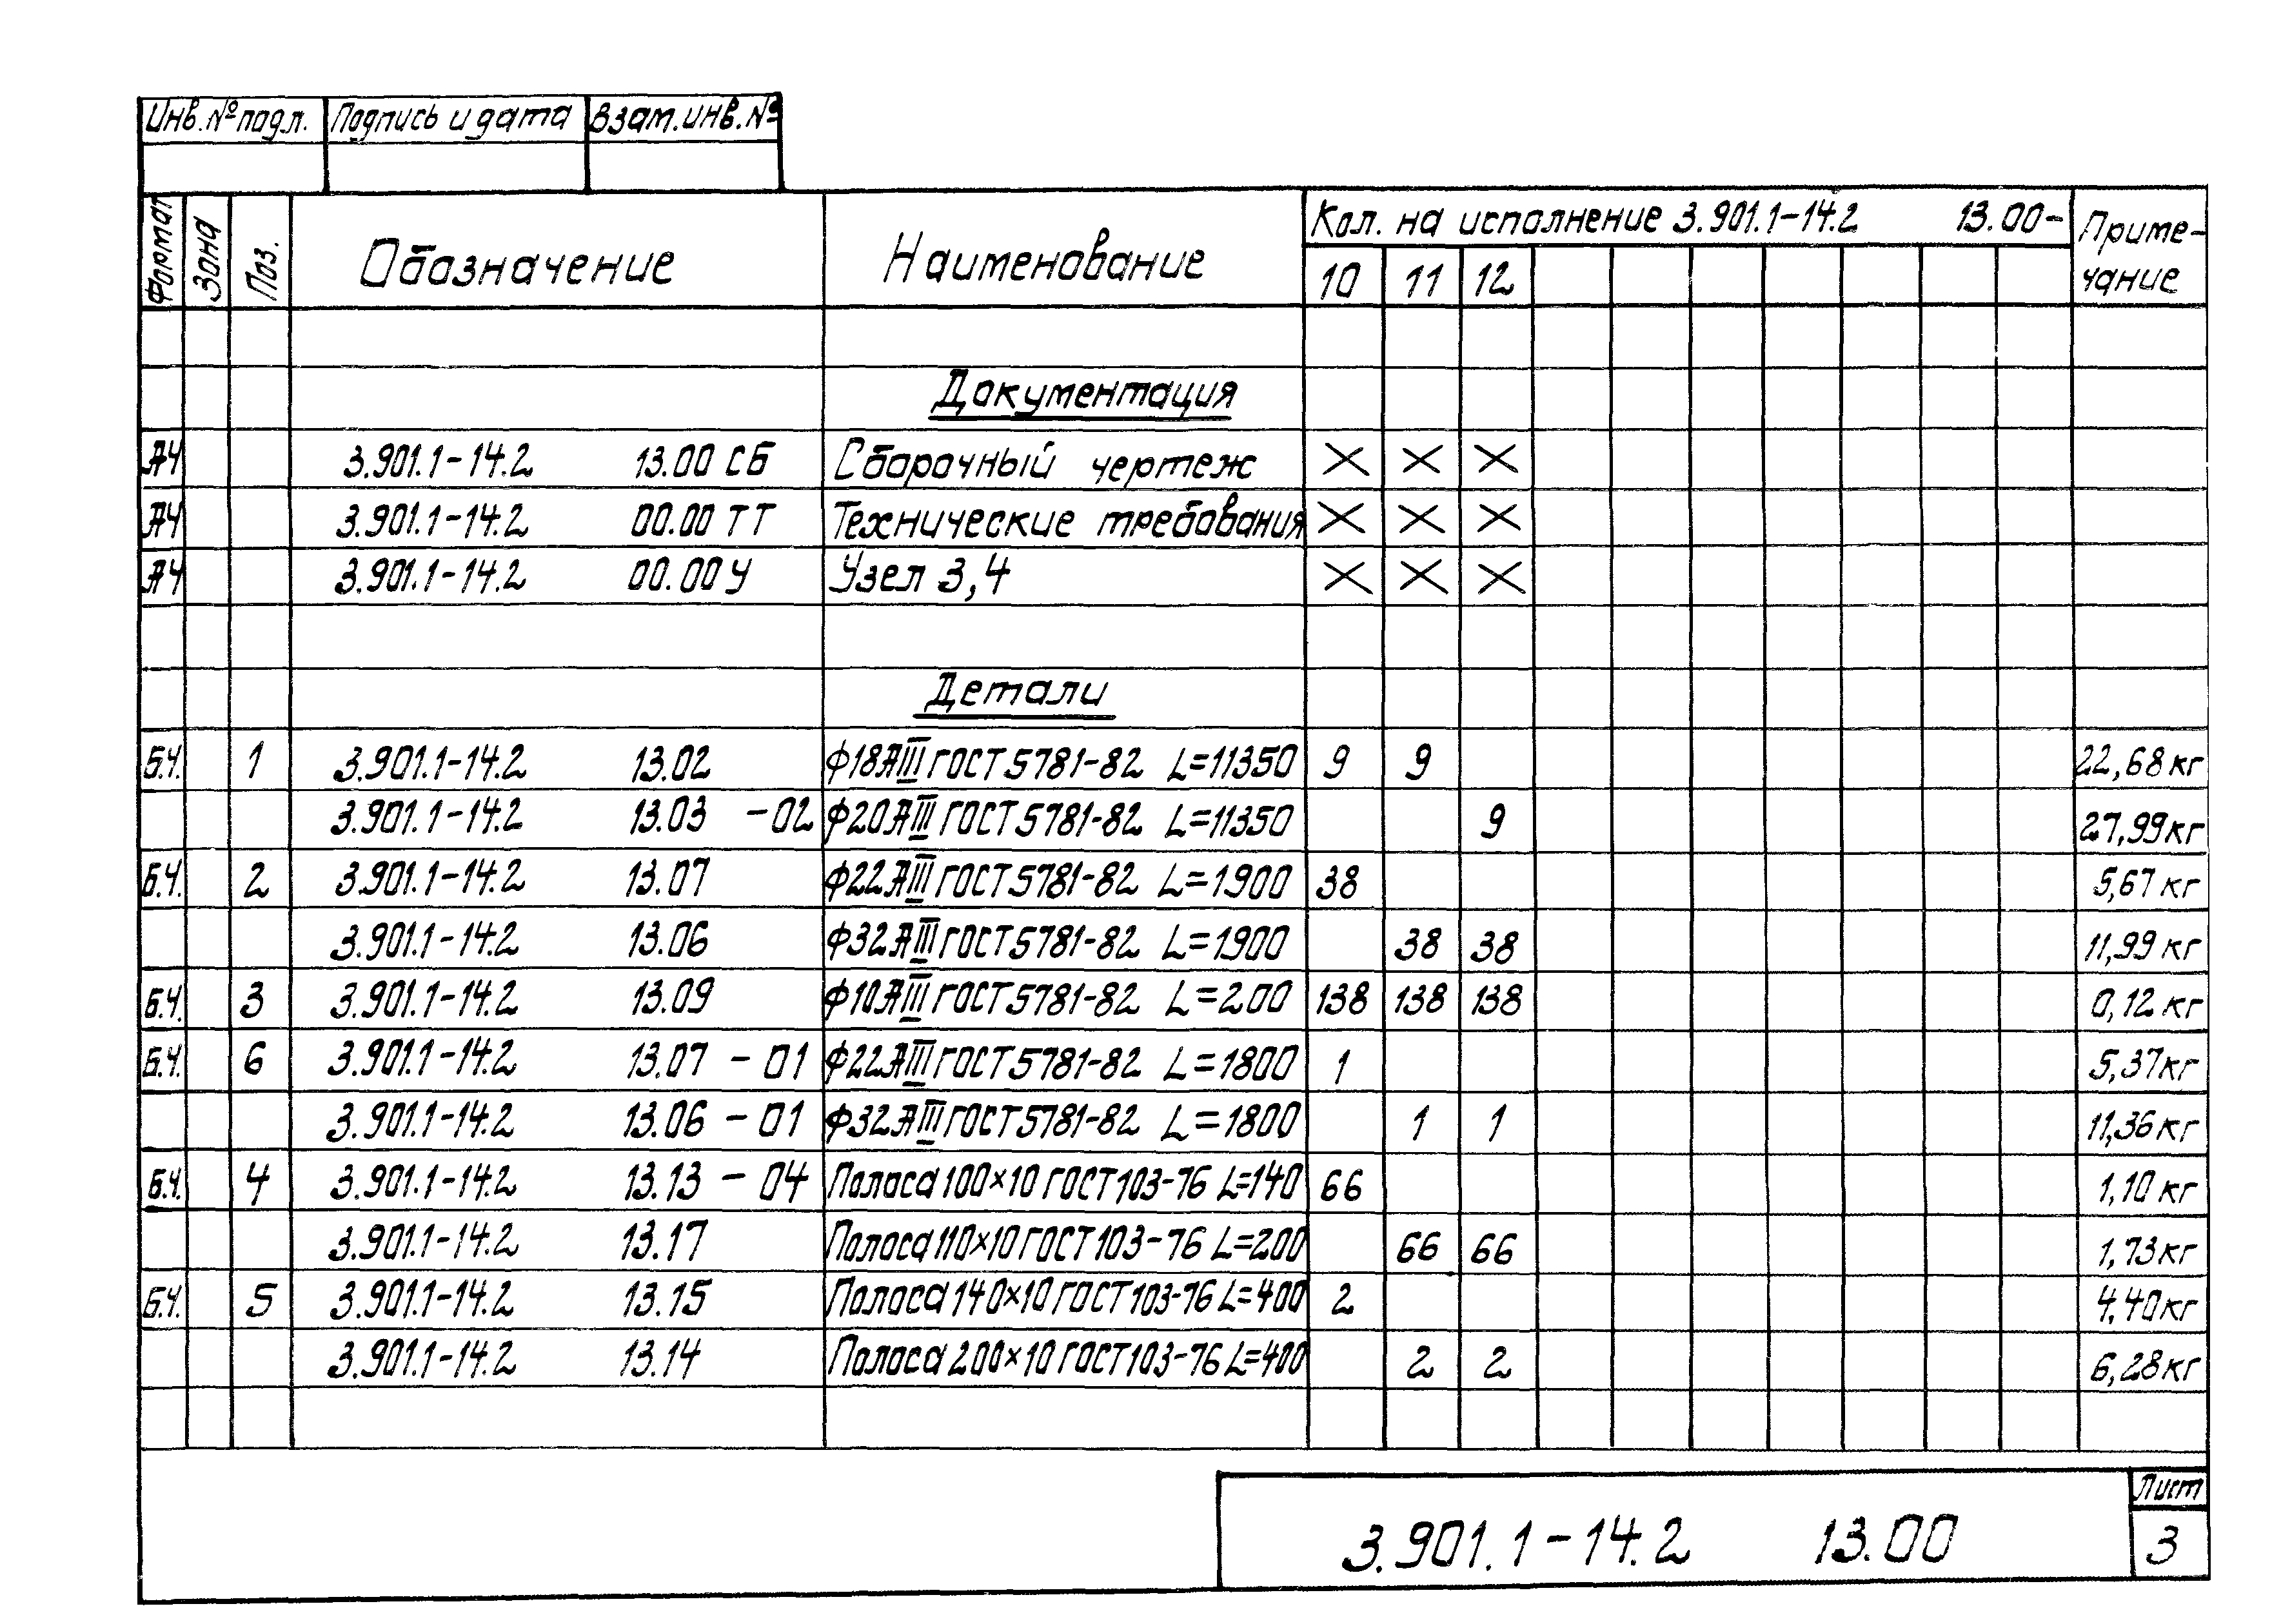 Инв.№ подл. Подпись и дата Взам.инв.№
Формат Зона Поз. Обозначение Наименование Кол. на исполнение 3.901.1-14.2 13.00- Приме-
10 11 12 чание
Документация
А4 3.901.1-14.2 13.00 СБ Сборочный чертеж X X X
А4 3.901.1-14.2 00.00 ТТ Технические требования X X X
А4 3.901.1-14.2 00.00 У Узел 3,4 X X X
Детали
Б.Ч. 1 3.901.1-14.2 13.02 Ф18АIII ГОСТ 5781-82 L=11350 9 9 22,68 кг
3.901.1-14.2 13.03 -02 Ф20АIII ГОСТ 5781-82 L=11350 9 27,99 кг
Б.Ч. 2 3.901.1-14.2 13.07 Ф22АIII ГОСТ 5781-82 L=1900 38 5,67 кг
3.901.1-14.2 13.06 Ф32АIII ГОСТ 5781-82 L=1900 38 38 11,99 кг
Б.Ч. 3 3.901.1-14.2 13.09 Ф10АIII ГОСТ 5781-82 L=200 138 138 138 0,12 кг
Б.Ч. 6 3.901.1-14.2 13.07 - 01 Ф22АIII ГОСТ 5781-82 L=1800 1 5,37 кг
3.901.1-14.2 13.06 - 01 Ф32АIII ГОСТ 5781-82 L=1800 1 1 11,36 кг
Б.Ч. 4 3.901.1-14.2 13.13 - 04 Полоса 100×10 ГОСТ 103-76 L=140 66 1,10 кг
3.901.1-14.2 13.17 Полоса 110×10 ГОСТ 103-76 L=200 66 66 1,73 кг
Б.Ч. 5 3.901.1-14.2 13.15 Полоса 140×10 ГОСТ 103-76 L=400 2 4,40 кг
3.901.1-14.2 13.14 Полоса 200×10 ГОСТ 103-76 L=400 2 2 6,28 кг
Лист
3.901.1-14.2 13.00 3